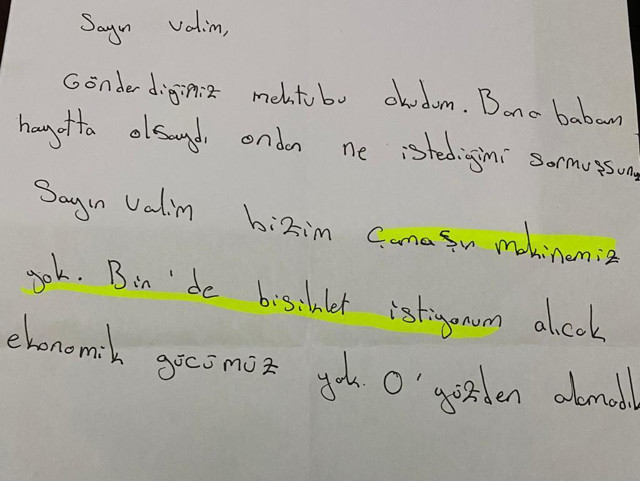 Sayın Valim,
Gönderdiğiniz mektubu okudum. Bana babam
hayatta olsaydı ondan ne istediğimi sormuşsunuz
Sayın Valim bizim Çamaşır makinemiz
yok. Bir'de bisiklet istiyorum alıcak
ekonomik gücümüz yok. O'yüzden alamadık